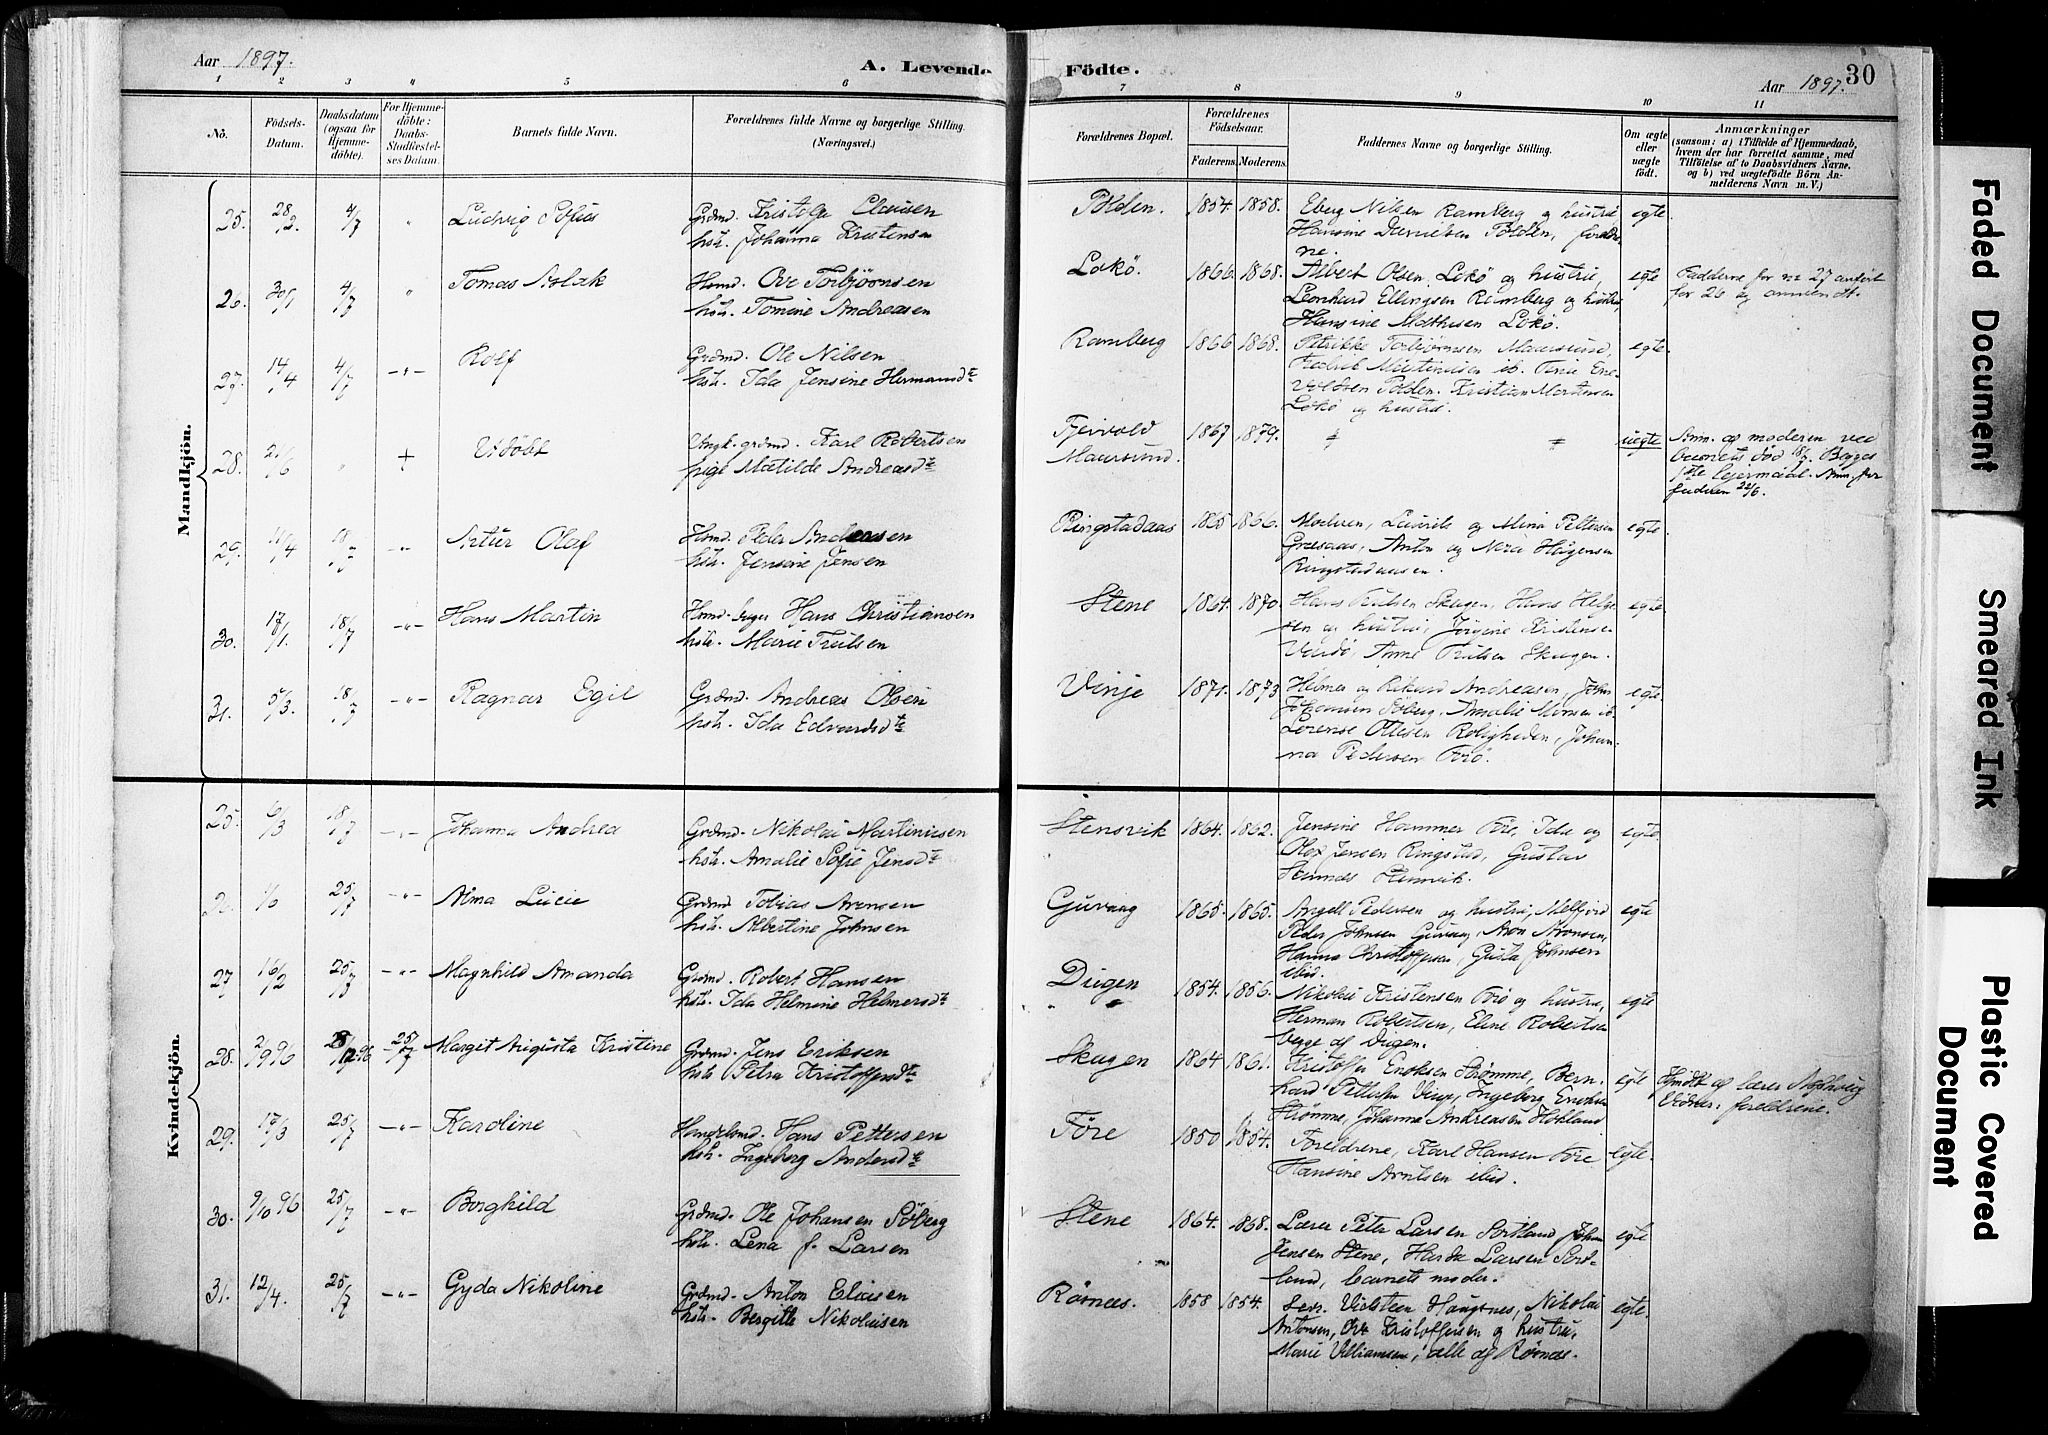 Aar 1897.
A. Levende Födte.
Aar 1897.
30
1 2 3 4 5 6 7 8 9 10 11
No.
Födsels-Datum.
Daabsdatum (ogsaa for Hjemme-döbte).
For Hjemme-döbte: Daabs-Stadfæstel-ses Datum.
Barnets fulde Navn.
Forældrenes fulde Navne og borgerlige Stilling.
(Næringsvei.)
Forældrenes Bopæl.
Forældrenes Födselsaar.
Faderens. Moderens.
Faddernes Navne og borgerlige Stilling.
Om ægte eller uægte födt.
Anmærkninger
(saasom: a) i Tilfælde af Hjemmedaab,
hvem der har forrettet samme, med
Tilföielse af to Daabsvidners Navne.
og b) ved uægtefödte Börn An-
melderens Navn m. V.)
Mandkjön.
25. 28/2 4/7 " Ludvig Sofus
Grdmd. Kristofer Clausen
hstr. Johanna Kristensen
Polden. 1854. 1858.
Eberg Nilsen Ramberg og hustru
Hansine Danielsen Polden, foreldre-
ne.
egte
26. 30/1 4/7 " Tomas Aslak
Hsmd. Ove Torbjörnsen
hstr. Tomine Andreasen
Lokö. 1866. 1868.
Albert Olsen Lokö og hustru,
Leonhard Ellingsen Ramberg og hustru,
Hansine Mathisen Lokö.
egte
Fadderne for nr 27 anfört
for 26 og omvendt.
27. 14/4 4/7 -"- Rolf
Grdmd. Ole Nilsen
hstr. Ida Jensine Hermansdte
Ramberg 1866 1868.
Petrikke Torbjörnsen Maursund,
Fredrik Martinusen ib. Tina Ene-
voldsen Polden. Kristian Martensen
Lokö og hustru.
egte.
28. 21/6 " + Udöbt
Ungk. grdmd. Karl Robertsen
pige Matilde Andreasdte
Tjeivold
Maursund.
1867 1879.
uegte
Anm. af moderen ved
barnets död 18/7. Begges
1ste leiermaal. Anm. for
faderen 22/6.
29. 11/4 18/7 -"- Artur Olaf
Hsmd. Peder Andreasen
hstr. Jensine Jensen
Ringstadaas 1865 1866.
Moderen, Laurits og Mina Pettersen
Græsaas, Anton og Nora Hågensen
Ringstadaasen.
egte.
30. 17/1 18/7 -"- Hans Martin
Hsmd. Inger Hans Christiansen
hstr. Marie Trulsen
Stene 1864. 1870.
Hans Trulsen Skagen, Hans Helge-
sen og hustru, Jörgine Kristensen
Vardö, Anne Trulsen Skagen.
egte
31. 5/3. 18/7 -"- Ragnar Egil
Grdmd. Andreas Olsen
hstr. Ida Edvardsdte
Vinje 1871. 1873
Helmer og Rikard Andreasen, John
Johansen Söberg. Amalie Monsen ib.
Lorense Ottesen Roligheden, Johan-
na Pedersen Förö.
egte.
Kvindekjön.
25. 6/3 18/7 -"- Johanna Andrea
Grdmd. Nikolai Martinusen
hstr. Amalie Sofie Jensdte
Stensvik 1864. 1862.
Jensine Hammer Före, Ida og
Olea Jensen Ringstad, Gustav
Stennes Stensvik.
egte.
26. 1/6 25/7 -"- Alma Lucie
Grdmd Tobias Aronsen
hstr. Albertine Johnsen
Guvaag 1865. 1865.
Angell Pedersen og hustru, Melfjord
Peder Johnsen Guvaag, Aron Aronsen,
Hanna Christoffersen, Gusta Johnsen
ibid.
egte
27. 16/2 25/7 -"- Magnhild Amanda
Grdmd. Robert Hansen
hstr. Ida Helmine Helmersdte
Dugen 1854. 1856.
Nikolai Kristensen Förö og hustru,
Herman Robertsen, Eline Robertsen
begge af Dugen.
egte
28. 2/9 96 28/12 96 25/7 Margit Augusta Kristine
Grdmd. Jens Eriksen
hstr. Petra Kristoffersdte
Skagen 1864 1861.
Kristoffer Enoksen Strömme, Bern-
hard Pettersen Vinje, Ingeborg Enoksen
Strömme, Johanna Andreasen Hokland
egte
Hjmdt af lærer
Vidner: foreldrene.
29. 17/3 25/7 -"- Karoline
Handelsmd. Hans Pettersen
hstr. Ingeborg Andersdte
Före 1850 1854.
Foreldrene, Karl Hansen Före
Hansine Arntsen ibid.
egte.
30. 9/10 96 25/7 -"- Borghild
Grdmd. Ole Johansen Söberg
hstr. Lena f. Larsen
Stene 1864. 1868.
Lærer Peter Larsen Sortland, Johan
Jensen Stene, Larsen Sort-
land, barnets moder.
egte
31. 12/4. 25/7 -"- Gyda Nikoline
Grdmd. Anton Eliasen
hstr. Bergitte Nikolaisen
Rösnæs. 1858 1854.
Sev. Vidsteen Haugsnes, Nikolai
Antonsen, Ole Kristoffersen og hustru,
Marie Villiamsen, alle af Rösnæs.
egte.
Faded Document
Smeared Ink
Plastic Covered
Document